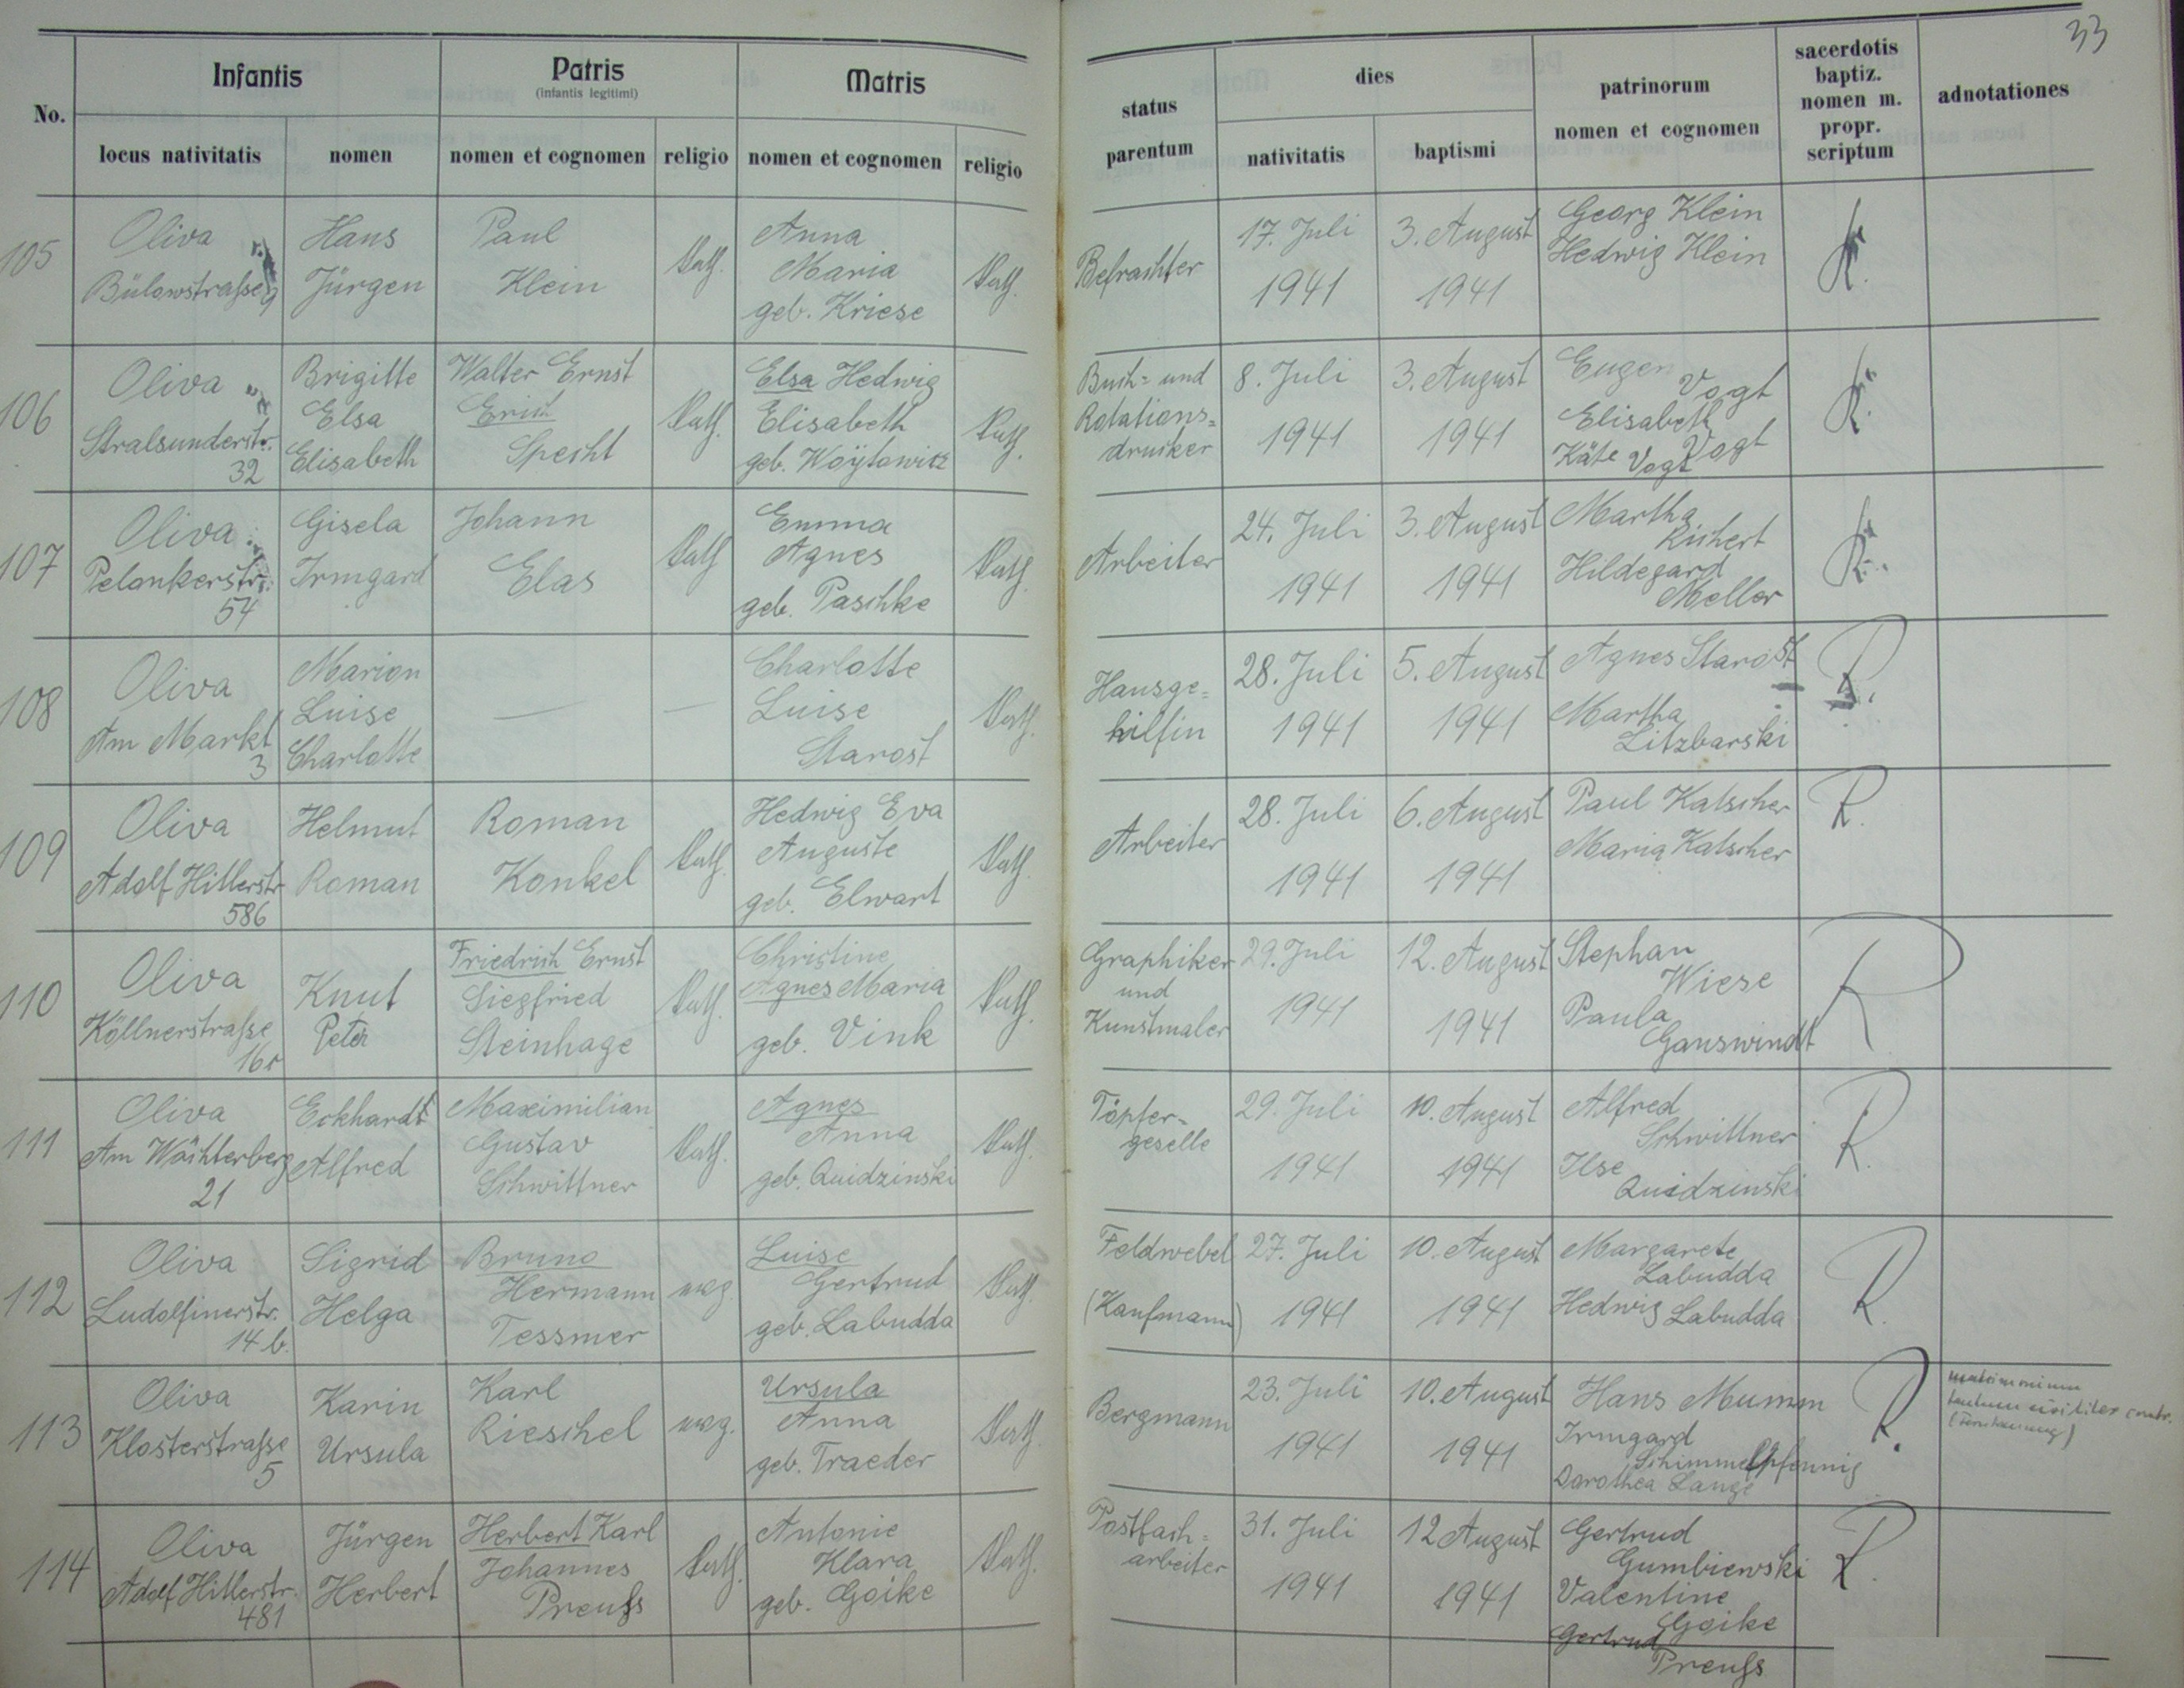 33
No.
Infantis
locus nativitatis
nomen
Patris
(infantis legitimi)
nomen et cognomen
religio
Matris
nomen et cognomen
religio
status
parentum
dies
nativitatis
baptismi
patrinorum
nomen et cognomen
sacerdotis
baptiz.
nomen m.
propr.
scriptum
adnotationes
105
Oliva
Bülowstraße 9
Hans
Jürgen
Paul
Klein
kath.
Anna
Maria
geb. Kriese
kath.
Befrachter
17. Juli
1941
3. August
1941
Georg Klein
Hedwig Klein
106
Oliva
Stralsunderstr.
32
Brigitte
Elsa
Elisabeth
Walter Ernst
Erich
Specht
kath.
Elsa Hedwig
Elisabeth
geb. Woytowitz
kath.
Buch= und
Rotations=
drucker
8. Juli
1941
3. August
1941
Eugen
Vogt
Elisabeth
Vogt
Käte Vogt
107
Oliva
Pelonkerstr.
54
Gisela
Irmgard
Johann
Elas
kath
Emma
Agnes
geb. Paschke
kath.
Arbeiter
24. Juli
1941
3. August
1941
Martha
Richert
Hildegard
Meller
108
Oliva
Am Markt
3
Marion
Luise
Charlotte
—
—
Charlotte
Luise
Starost
kath.
Hausge=
hilfin
28. Juli
1941
5. August
1941
Agnes Starost
Martha
Litzbarski
R.
109
Oliva
Adolf Hitlerstr
586
Helmut
Roman
Roman
Konkel
kath.
Hedwig Eva
Auguste
geb. Elwart
kath.
Arbeiter
28. Juli
1941
6. August
1941
Paul Katscher
Maria Katscher
R.
110
Oliva
Köllnerstraße
Knut
Peter
Friedrich Ernst
Siegfried
Steinhage
kath.
Christine
Agnes Maria
geb. Vink
kath.
Graphiker
und
Kunstmaler
29. Juli
1941
12. August
1941
Stephan
Wiese
Paula
Ganswindt
R
111
Oliva
Am Wächterberg
21
Eckhardt
Alfred
Maximilian
Gustav
Schwittner
kath.
Agnes
Anna
geb. Quidzinski
kath.
Töpfer-
geselle
29. Juli
1941
10. August
1941
Alfred
Schwittner
Ilse
Quidzinski
R.
112
Oliva
Ludolfinerstr.
14 b.
Sigrid
Helga
Bruno
Hermann
Tessmer
evg.
Luise
Gertrud
geb. Labudda
kath.
Feldwebel
(Kaufmann)
27. Juli
1941
10. August
1941
Margarete
Labudda
Hedwig Labudda
R.
113
Oliva
Klosterstraße
5
Karin
Ursula
Karl
Rieschel
evg.
Ursula
Anna
geb. Traeder
kath.
Bergmann
23. Juli
1941
10. August
1941
Hans Mumm
Irmgard
Schimmelpfennig
Dorothea Lange
R.
matrimonium
tantum civiliter contr.
114
Oliva
Adolf Hitlerstr.
481
Jürgen
Herbert
Herbert Karl
Johannes
Preuß
kath.
Antonie
Klara
geb. Goike
kath.
Postfach=
arbeiter
31. Juli
1941
12 August
1941
Gertrud
Gumbiewski
Valentine
Goike
Gertrud
Preuß
R.